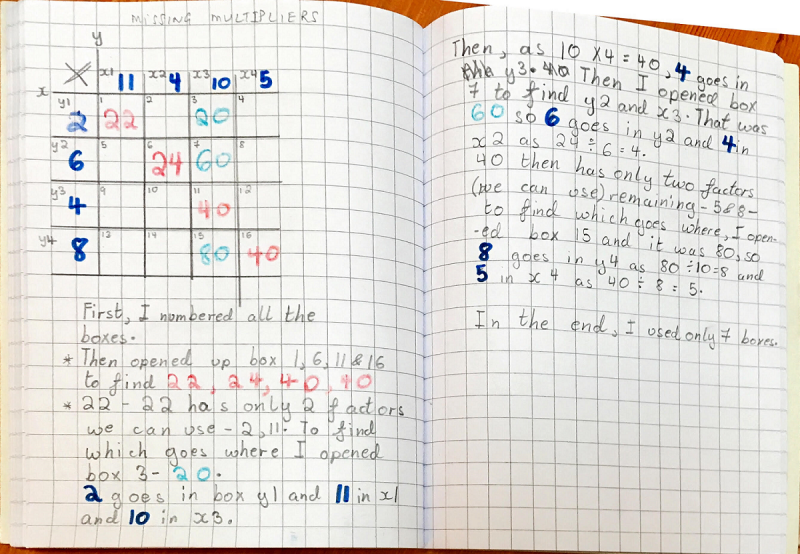 MISSING MULTIPLIERS
y
x1 11 x2 4 x3 10 x4 5
x
y1 2 1 22 2 3 20 4
y2 6 5 6 24 7 60 8
y3 4 9 10 11 40 12
y4 8 13 14 15 80 16 40
First, I numbered all the
boxes.
* Then opened up box 1, 6, 11 & 16
to find 22, 24, 40, 40
* 22 - 22 has only 2 factors
we can use - 2, 11. To find
which goes where I opened
box 3 - 20.
2 goes in box y1 and 11 in x1
and 10 in x3.
Then, as 10 x 4 = 40, 4 goes in
y3. Then I opened box
7 to find y2 and x3. That was
60 so 6 goes in y2 and 4 in
x2 as 24 ÷ 6 = 4.
40 then has only two factors
(we can use) remaining - 5 & 8 -
to find which goes where, I open-
-ed box 15 and it was 80, so
8 goes in y4 as 80 ÷ 10 = 8 and
5 in x4 as 40 ÷ 8 = 5.
In the end, I used only 7 boxes.